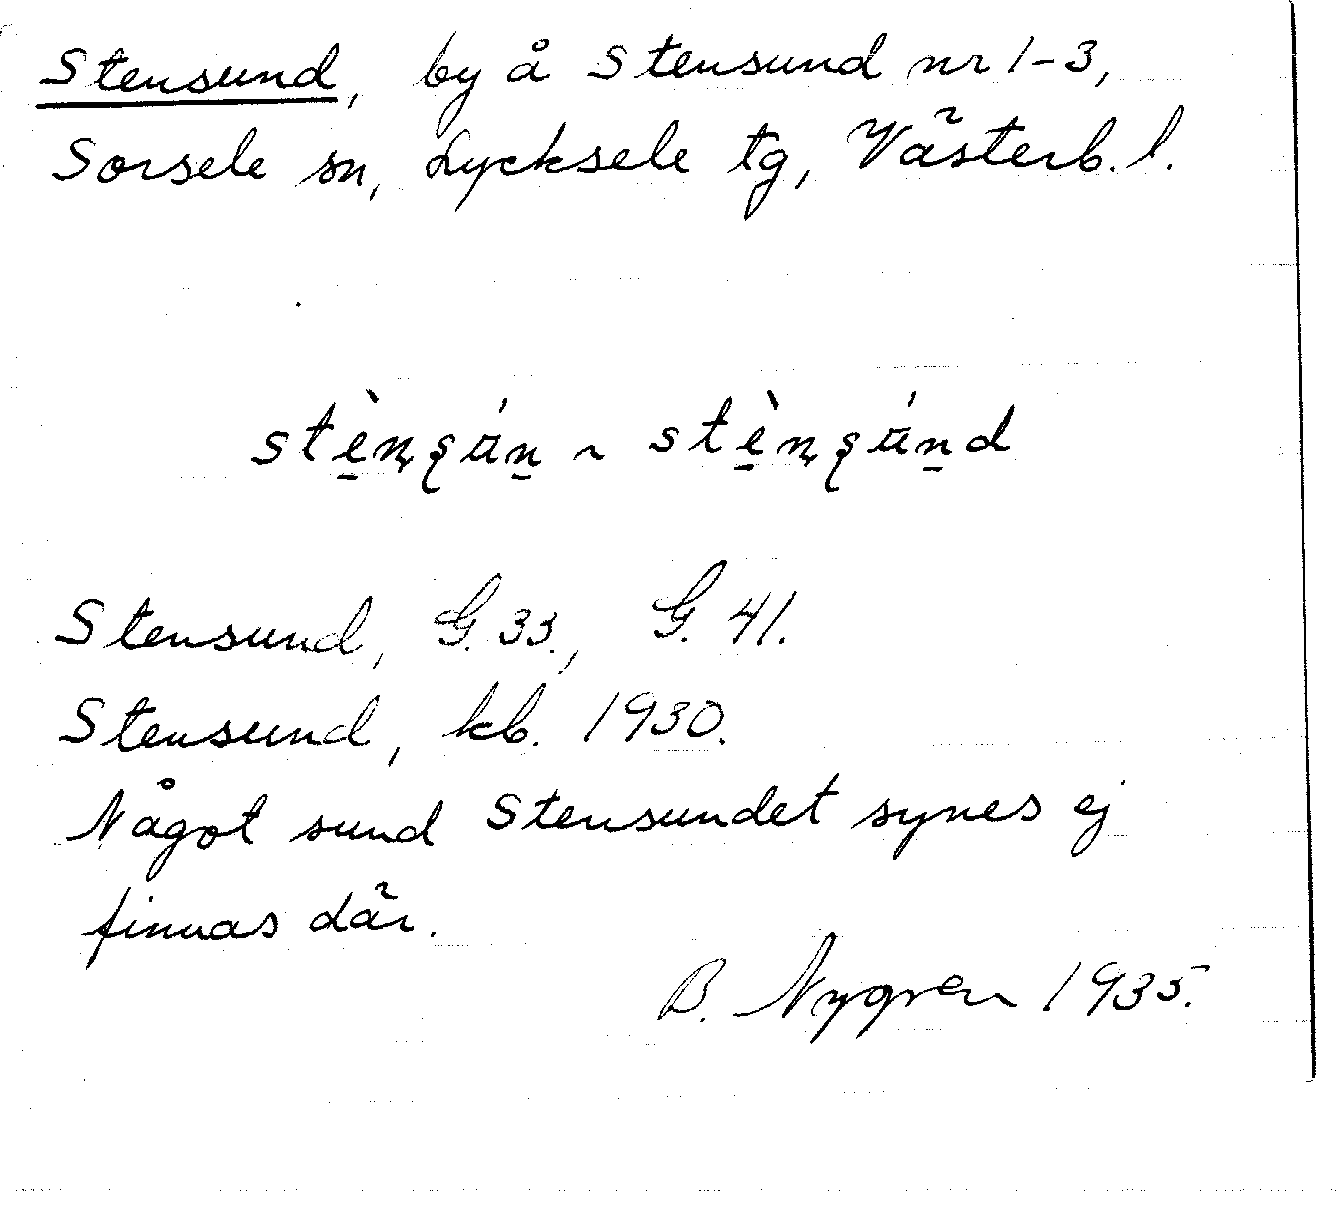 Stensund, by å Stensund nr 1-3,
Sorsele sn, Lycksele tg, Västerb. l.
Stensund, G. 33., G. 41.
Stensund, kb. 1930.
Något sund Stensundet synes ej
finnas där.
B. Nygren 1935.